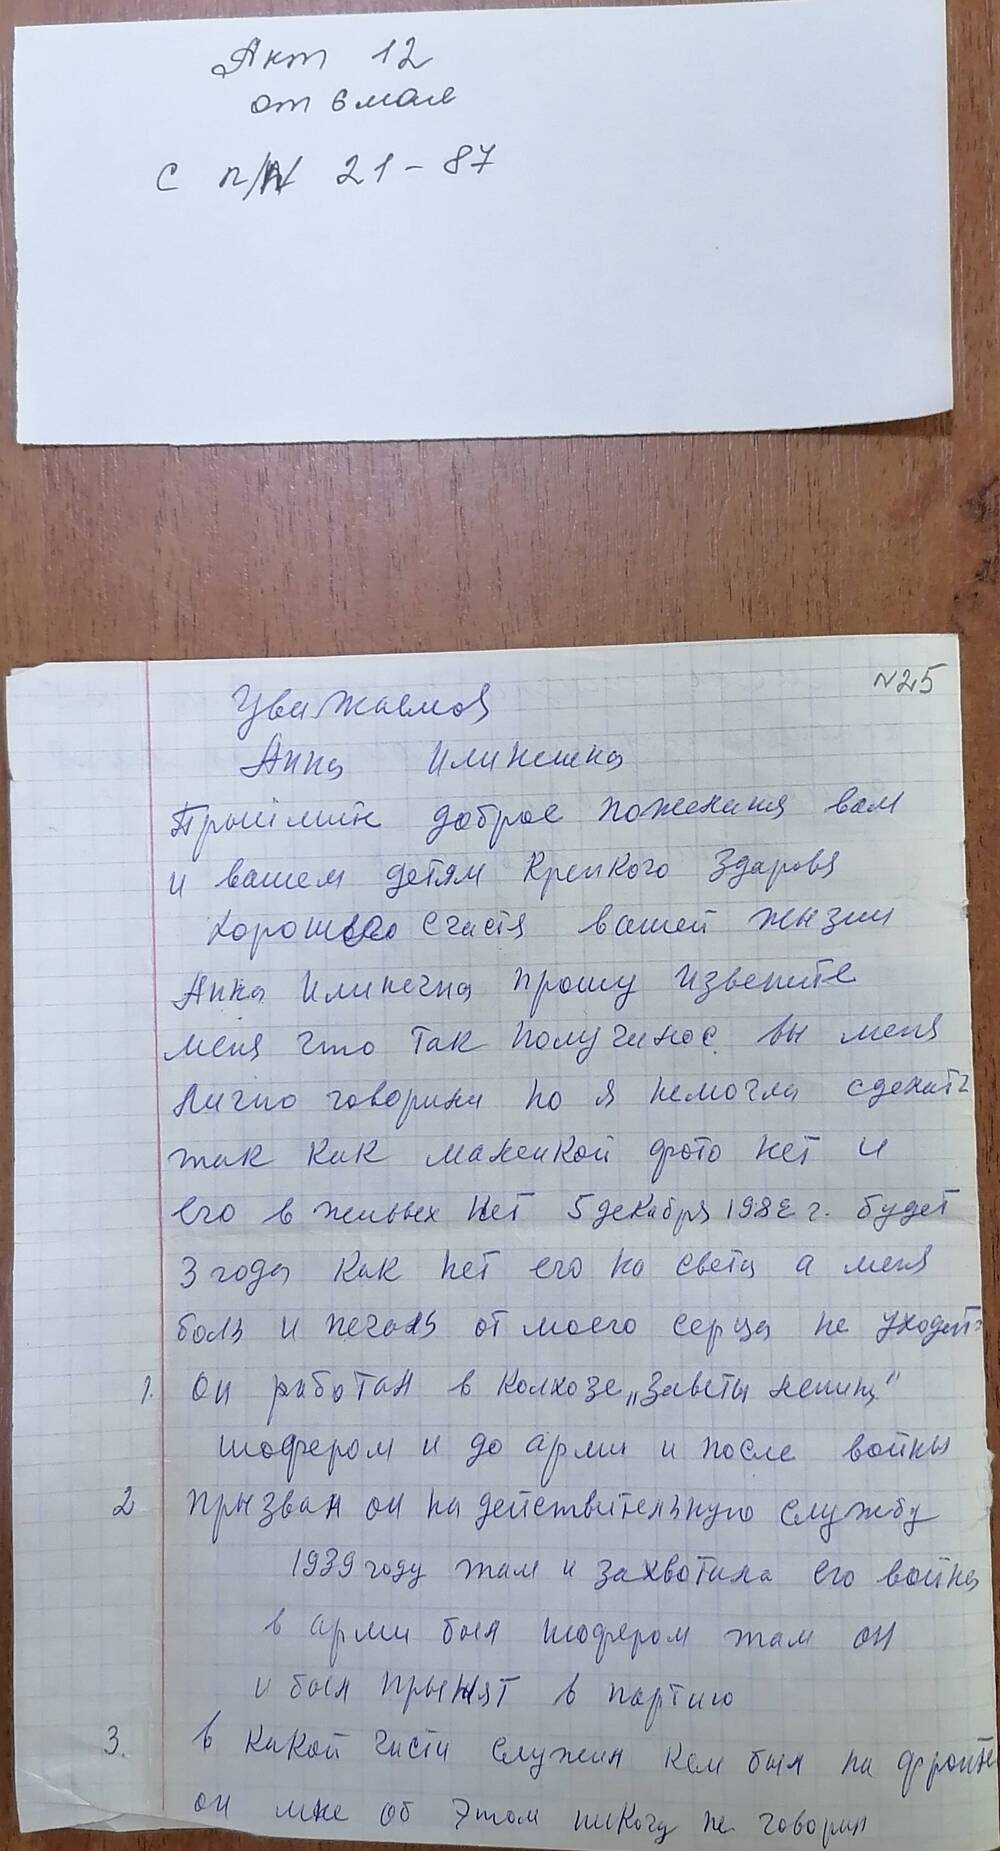 Акт 12
от 6 мая
с п/ 21-87
№25
Уважаемоя
Анна Илинешна
доброе пожелания вам
и вашем детям Крепкого Здаровя
хорошего счастя вашей жызни
Анна Илинечна прошу извените
меня что так получилос вы меня
Лично говорили но я немогла сделать
так как маленкой фото нет и
его в живых Нет 5 декабря 1982 г. будет
3 года как нет его на света а меня
боль и печаль от моего серца не уходит
1. Он работал в колхозе „Заветы ленина"
шофером и до арми и после войны
2 Прызван он на действительную службу
1939 году там и захвотила его война
в арми был шофером там он
и был прынят в партию
3. в какой части служил кем был на фронте
он мне об этом никогу не говорил